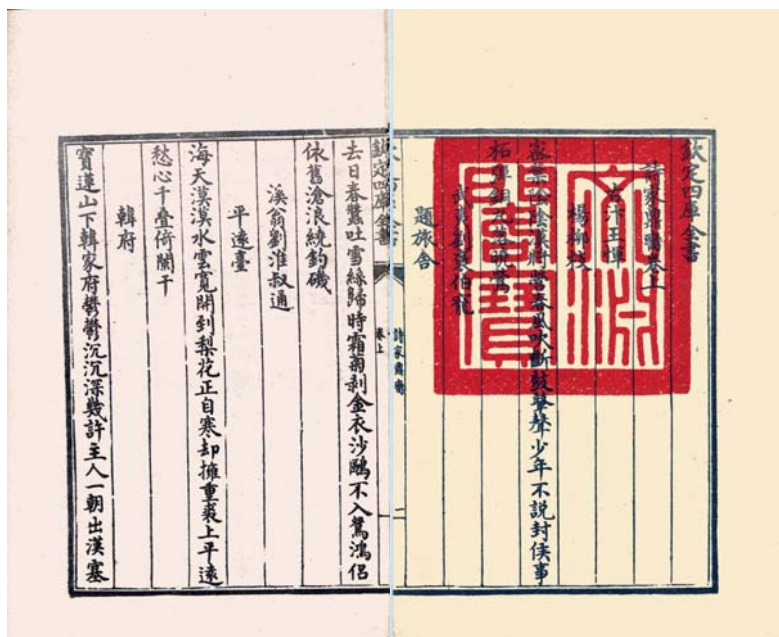 欽定四庫全書
詩家鼎臠卷上
古汴王惲
楊柳枝
密葉陰陰漢將營春風吹斷鼓鼙聲少年不說封侯事
柘彈銅丸落曉鶯
武夷劉褒伯寵
題旅舍
文淵
閣寶
欽定四庫全書
詩家鼎臠
卷上
二
去日春蠶吐雪絲歸時霜菊剥金衣沙鷗不入鴛鴻侶
依舊滄浪繞釣磯
溪翁劉淮叔通
平遠臺
海天漠漠水雲寬開到梨花正自寒却擁重裘上平遠
愁心千疊倚闌干
韓府
寶蓮山下韓家府鬱鬱沉沉深幾許主人一朝出漢塞